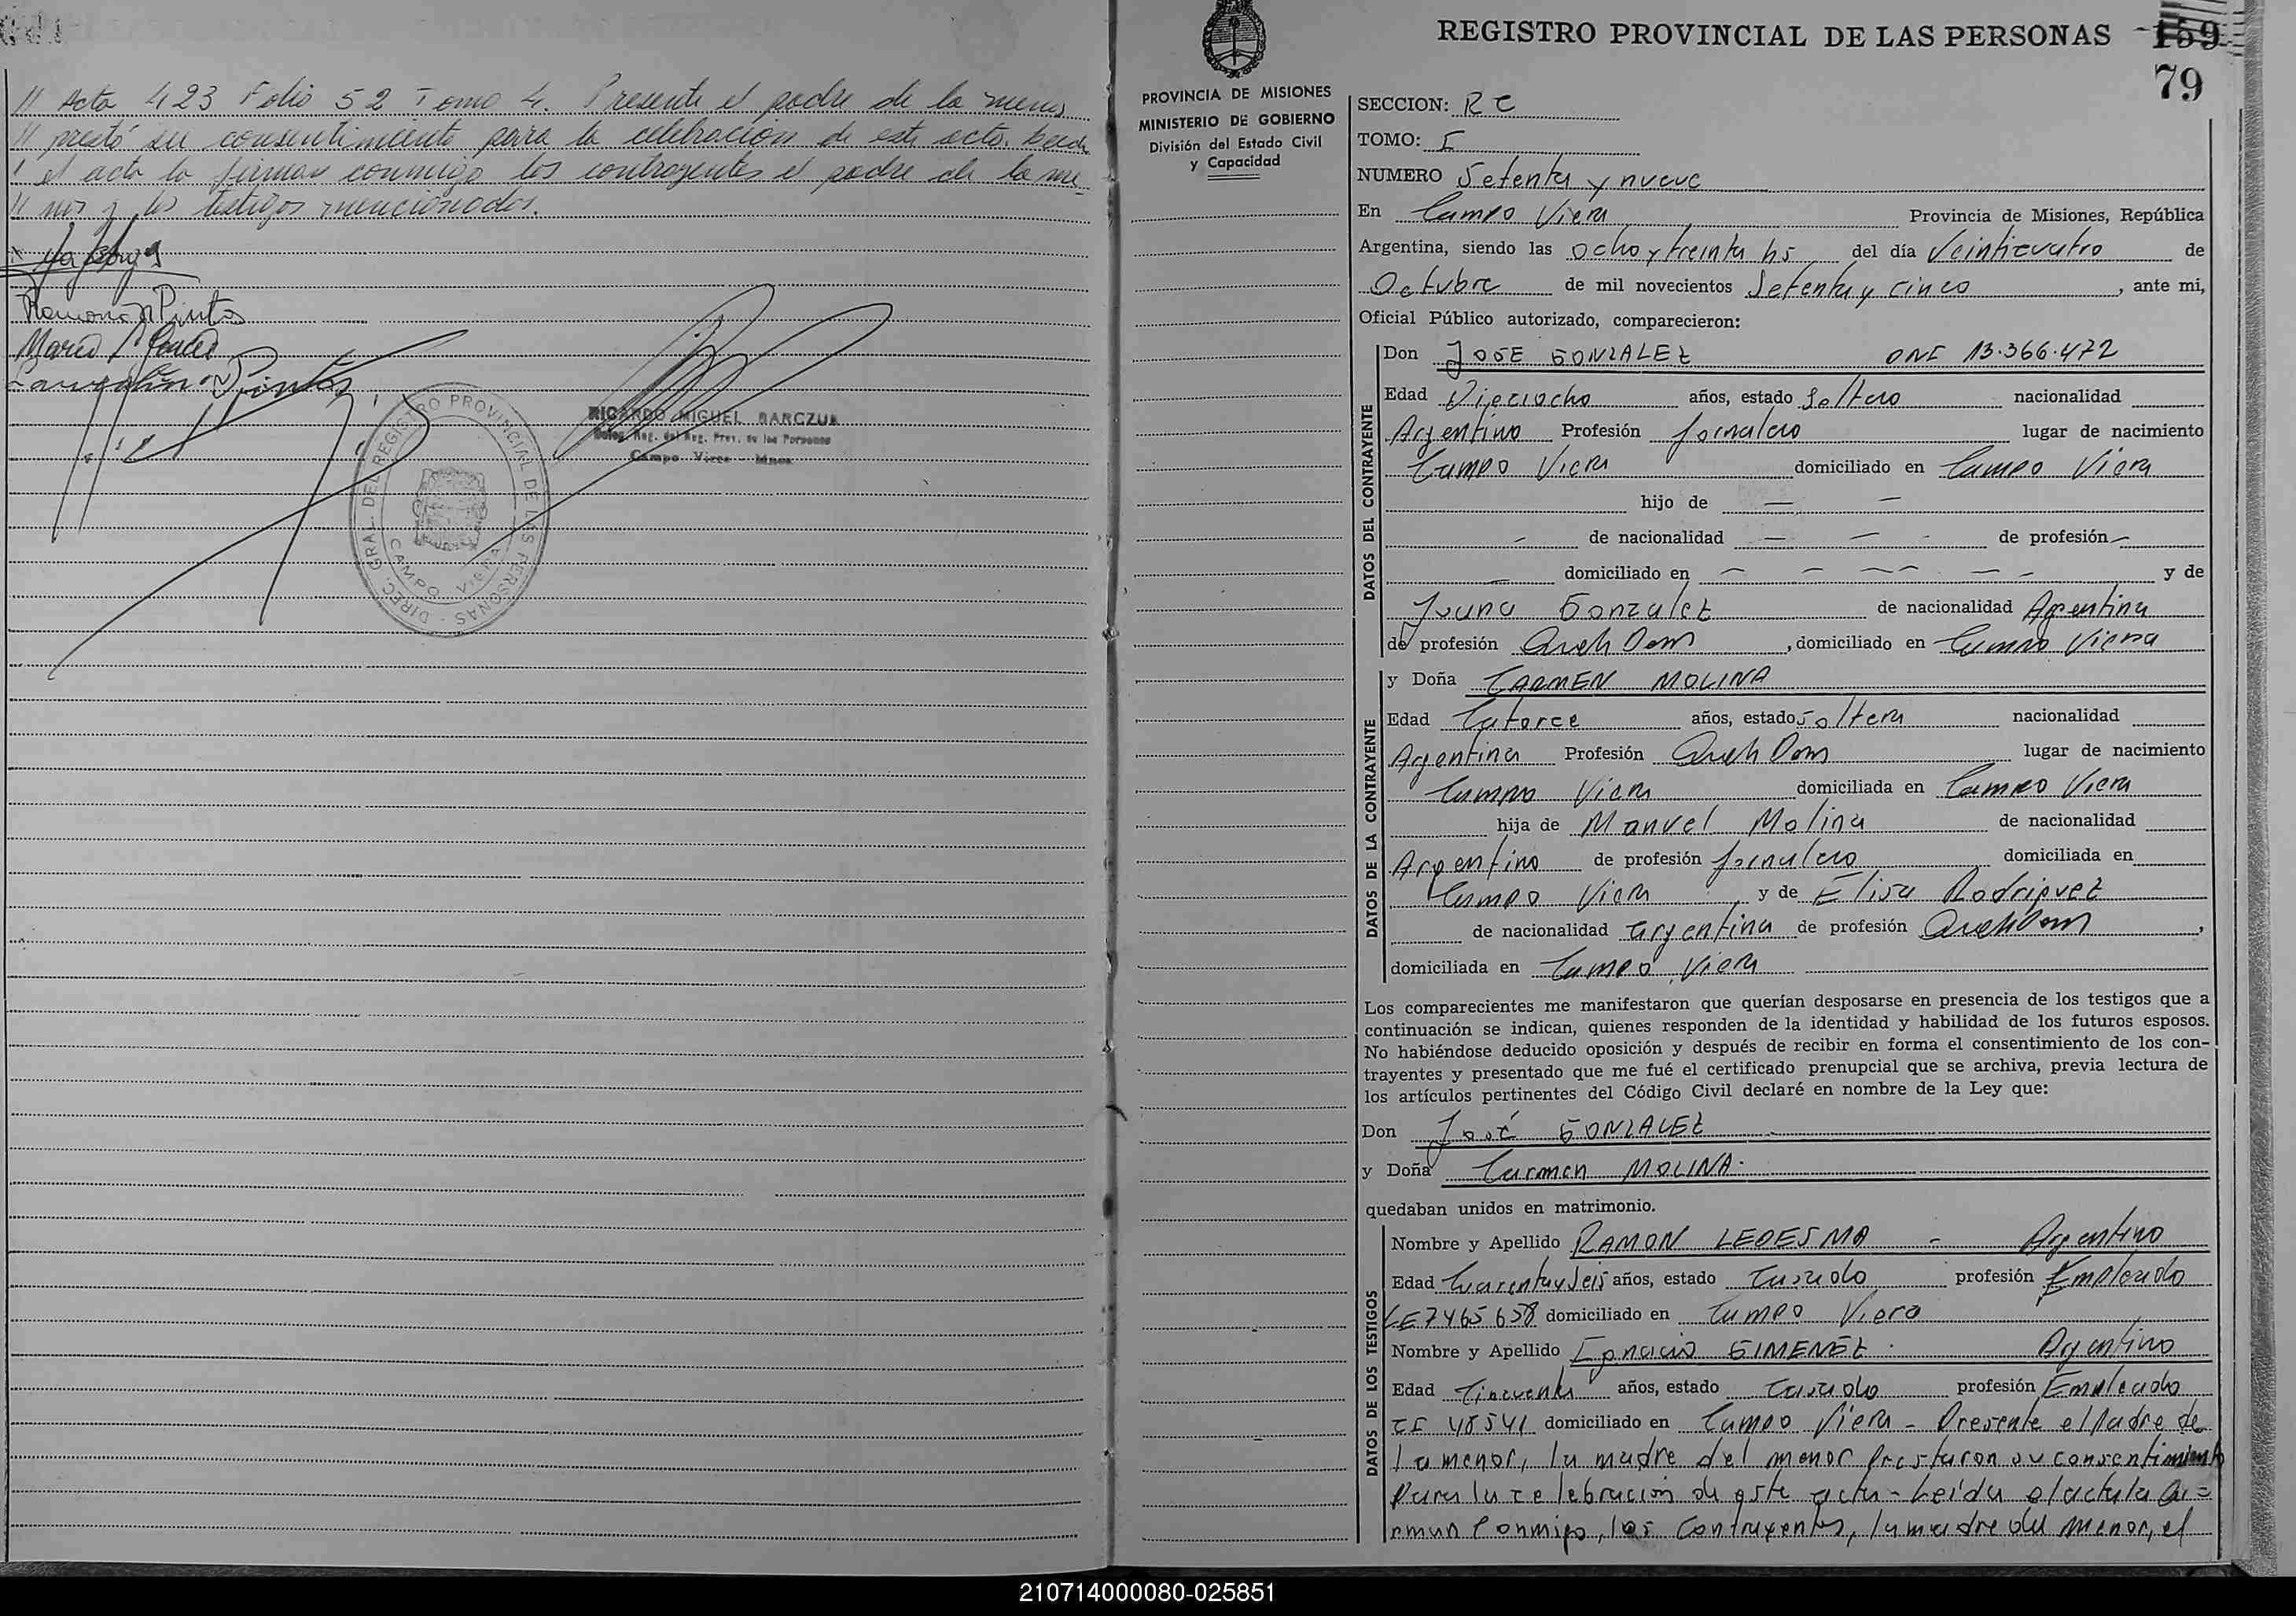 // Acta 423 Folio 52 Tomo 4. Presente el padre de la menor
// prestó su consentimiento para la celebración de este acto. Leida
// el acta la firman conmigo los contrayentes el padre de la me_
// nor y los testigos mencionados.
Ramona Pintos
Mario
Pintos
DIREC. GRAL. DEL REGISTRO PROVINCIAL DE LAS PERSONAS
CAMPO VIERA
RICARDO MIGUEL BARCZUK
Deleg. Reg. del Reg. Prov. de las Personas
Campo Viera Mnes.
REGISTRO PROVINCIAL DE LAS PERSONAS
159
79
PROVINCIA DE MISIONES
MINISTERIO DE GOBIERNO
División del Estado Civil
y Capacidad
SECCION: RC
TOMO: I
NUMERO Setenta y nueve
En Campo Viera Provincia de Misiones, República
Argentina, siendo las ocho y treinta hs del día Veinticuatro de
Octubre de mil novecientos Setenta y cinco, ante mi,
Oficial Público autorizado, comparecieron:
DATOS DEL CONTRAYENTE
Don JOSE GONZALEZ DNI 13.366.472
Edad Dieciocho años, estado Soltero nacionalidad
Argentino Profesión Jornalero lugar de nacimiento
Campo Viera domiciliado en Campo Viera
hijo de — —
- de nacionalidad — — - de profesión -
— domiciliado en — — — — — y de
Juana Gonzalez de nacionalidad Argentina
de profesión Queh Dom, domiciliado en Campo Viera
DATOS DE LA CONTRAYENTE
y Doña CARMEN MOLINA
Edad Catorce años, estado Soltera nacionalidad
Argentina Profesión Queh Dom lugar de nacimiento
Campo Viera domiciliada en Campo Viera
hija de Manuel Molina de nacionalidad
Argentino de profesión Jornalero domiciliada en
Campo Viera y de Elisa Rodriguez
de nacionalidad argentina de profesión Queh Dom,
domiciliada en Campo Viera
Los comparecientes me manifestaron que querían desposarse en presencia de los testigos que a
continuación se indican, quienes responden de la identidad y habilidad de los futuros esposos.
No habiéndose deducido oposición y después de recibir en forma el consentimiento de los con-
trayentes y presentado que me fué el certificado prenupcial que se archiva, previa lectura de
los artículos pertinentes del Código Civil declaré en nombre de la Ley que:
Don José GONZALEZ
y Doña Carmen MOLINA.
quedaban unidos en matrimonio.
DATOS DE LOS TESTIGOS
Nombre y Apellido RAMON LEDESMA - Argentino
Edad Cuarenta y Seis años, estado Casado profesión Empleado
LE 7465638 domiciliado en Campo Viera
Nombre y Apellido Ignacio GIMENEZ. Argentino
Edad Cincuenta años, estado Casado profesión Empleado
CI 48541 domiciliado en Campo Viera - Presente el Padre de
la menor, la madre del menor Prestaron su consentimiento
Para la celebración de este acta - Leida el acta la fi=
rman Conmigo, los Contrayentes, la madre del menor, el
210714000080-025851